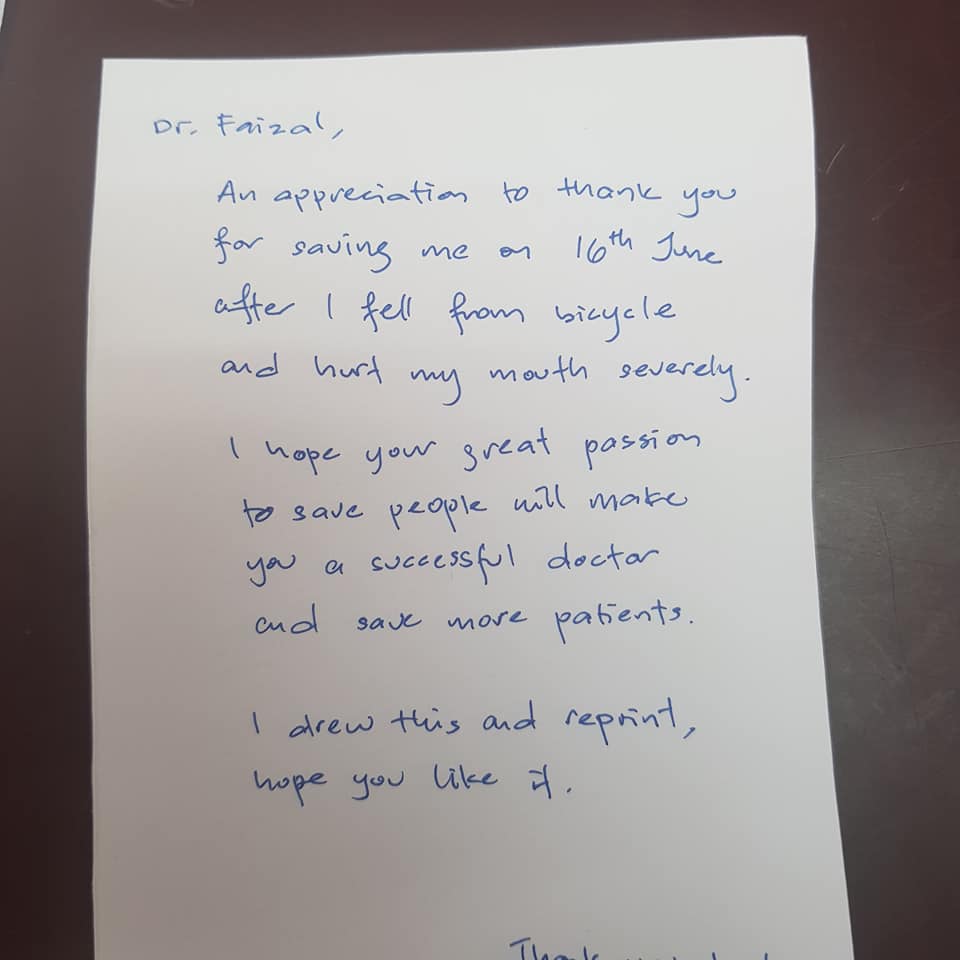 Dr. Faizal,
An appreciation to thank you
for saving me on 16th June
after I fell from bicycle
and hurt my mouth severely.
I hope your great passion
to save people will make
you a successful doctor
and save more patients.
I drew this and reprint,
hope you like it.
Thank